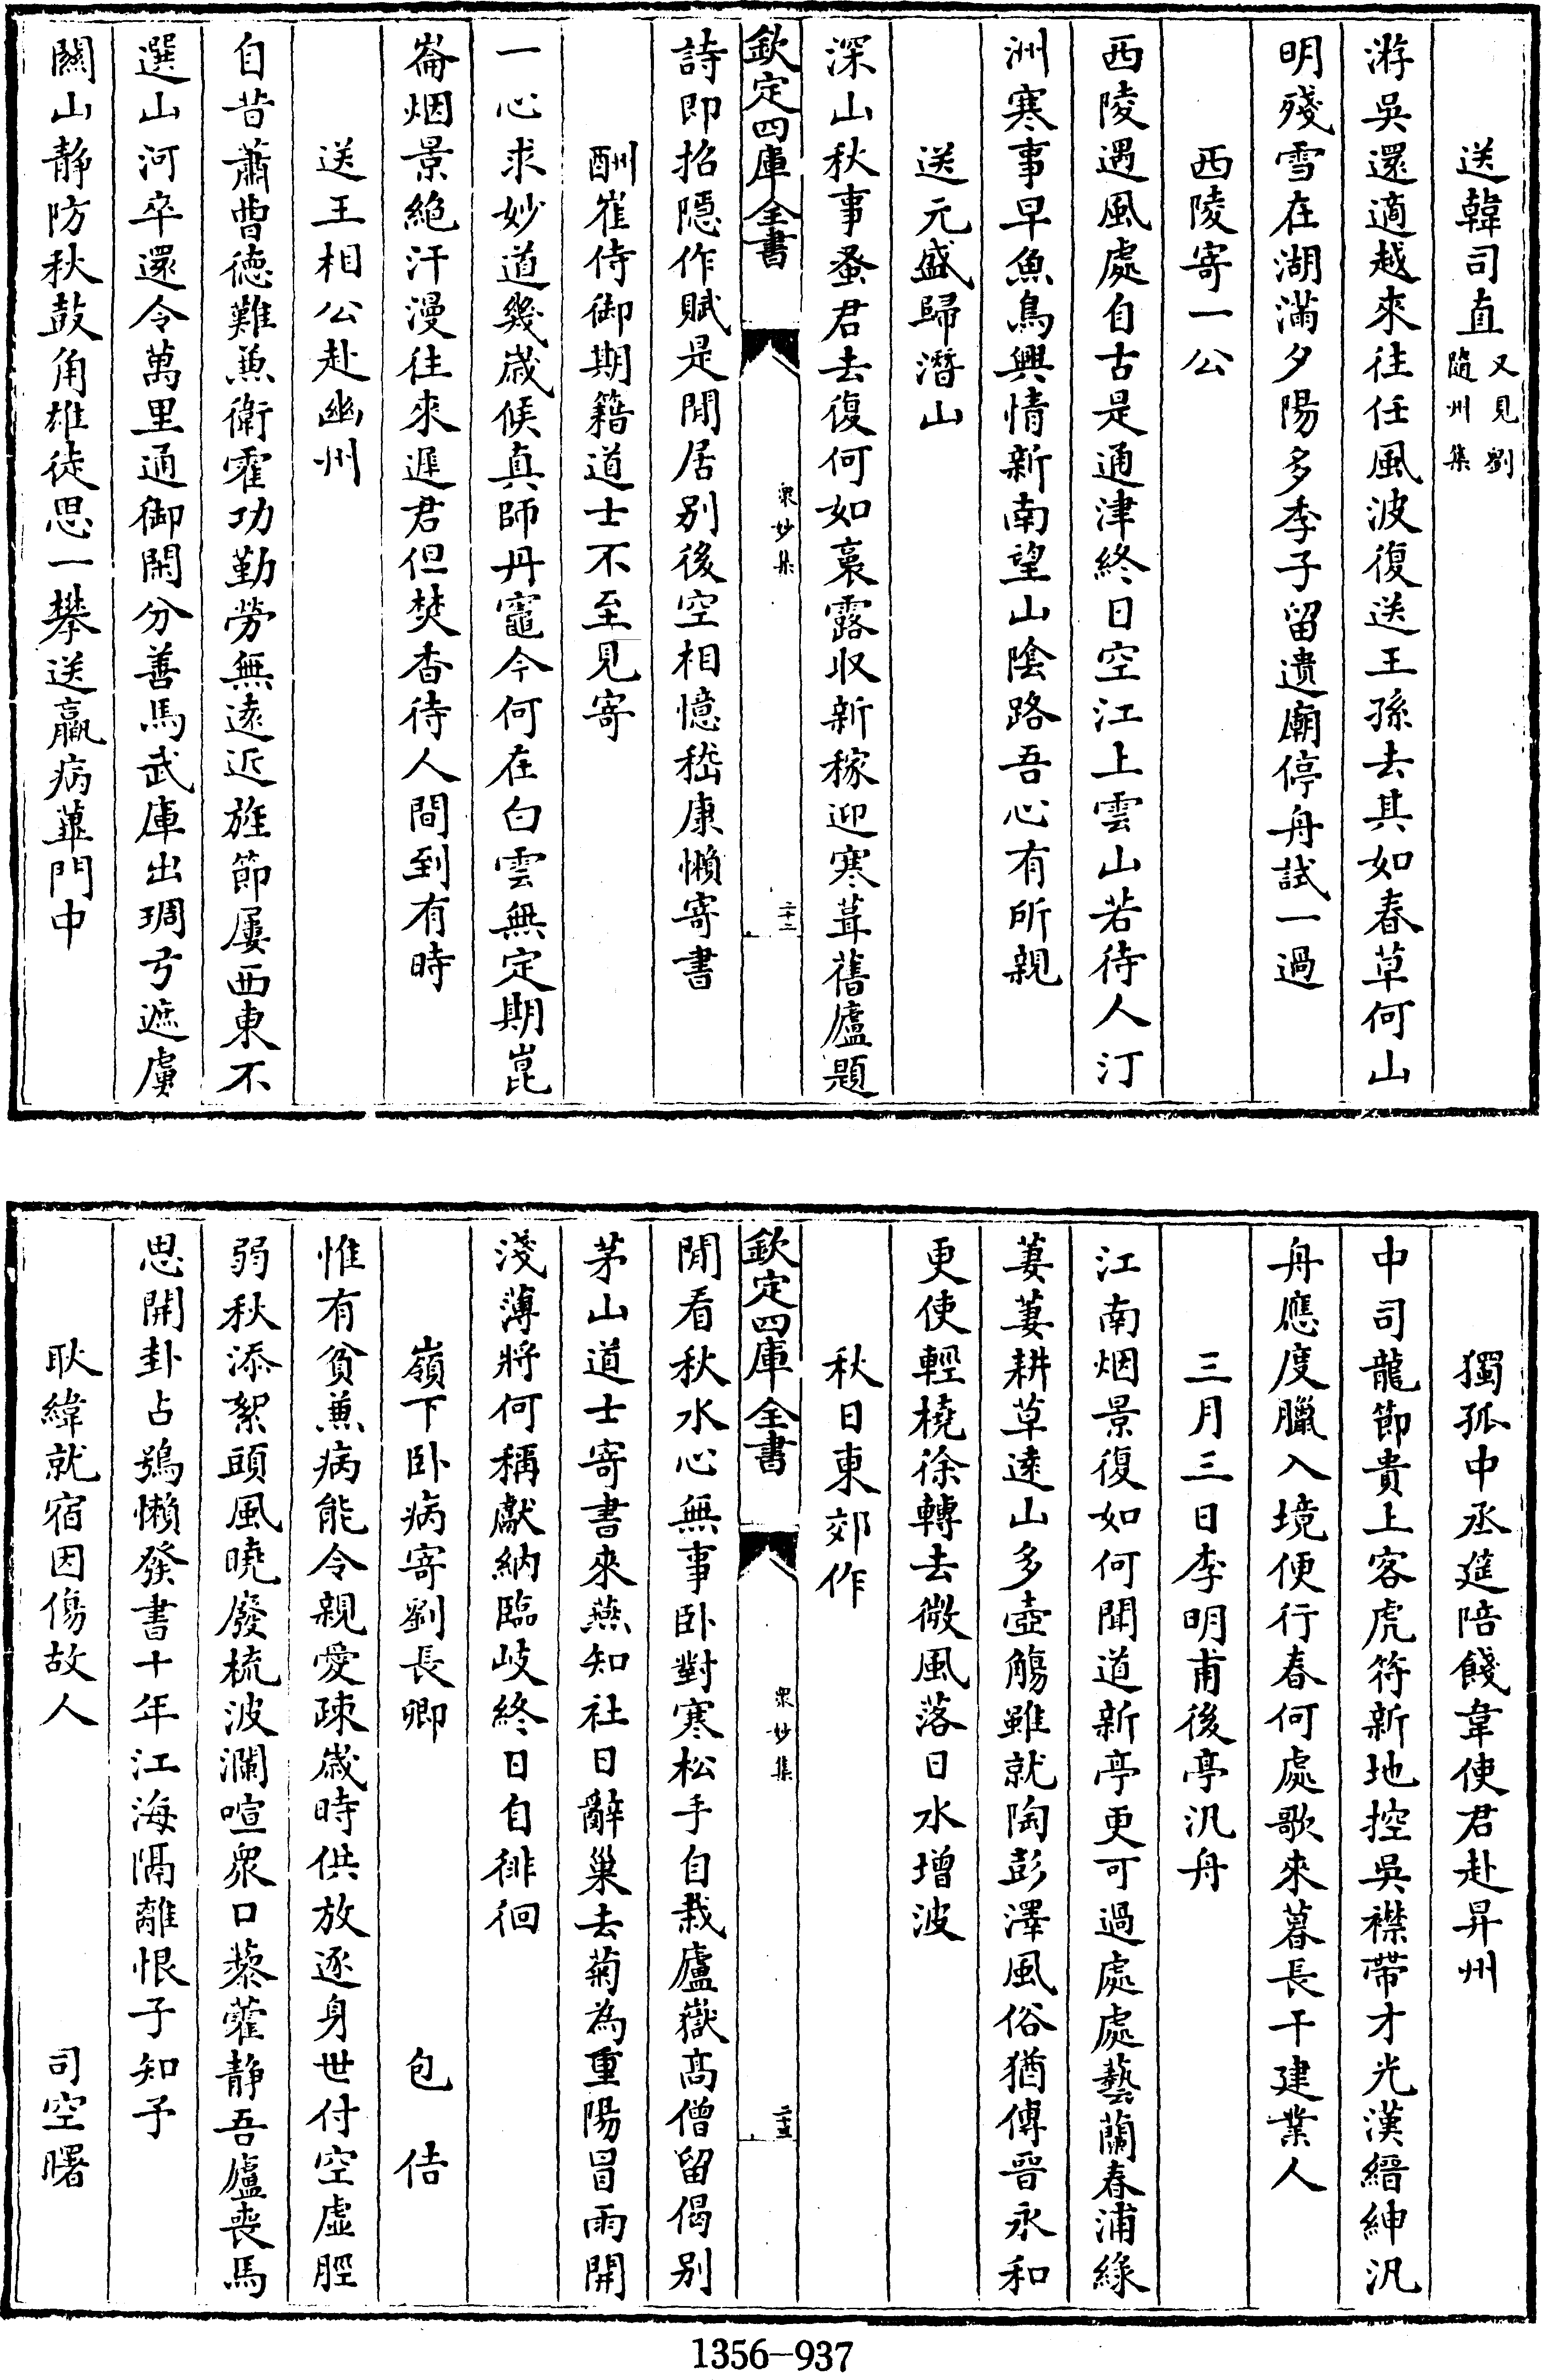 送韓司直又見劉隨州集
游吳還適越來往任風波復送王孫去其如春草何山
明殘雪在湖滿夕陽多季子留遺廟停舟試一過
西陵寄一公
西陵遇風處自古是通津終日空江上雲山若待人汀
洲寒事早魚鳥興情新南望山陰路吾心有所親
送元盛歸潛山
深山秋事蚤君去復何如裛露收新稼迎寒葺舊廬題
欽定四庫全書
衆妙集
二十二
詩即招隱作賦是閒居别後空相憶嵇康懶寄書
酬崔侍御期籍道士不至見寄
一心求妙道幾歲候真師丹竈今何在白雲無定期崑
崙烟景絶汗漫往來遲君但焚香待人間到有時
送王相公赴幽州
自昔蕭曹徳難兼衛霍功勤勞無逺近旌節屢西東不
選山河卒還令萬里通御閑分善馬武庫出琱弓遮虜
關山静防秋鼓角雄徒思一攀送羸病蓽門中
獨孤中丞筵陪餞韋使君赴昇州
中司龍節貴上客虎符新地控吳襟帶才光漢縉紳汎
舟應度臘入境便行春何處歌來暮長干建業人
三月三日李明甫後亭汎舟
江南烟景復如何聞道新亭更可過處處藝蘭春浦綠
萋萋耕草逺山多壺觴雖就陶彭澤風俗猶傳晉永和
更使輕橈徐轉去微風落日水增波
秋日東郊作
欽定四庫全書
衆妙集
二十三
閒看秋水心無事卧對寒松手自栽廬嶽髙僧留偈别
茅山道士寄書來燕知社日辭巢去菊為重陽冒雨開
淺薄將何稱獻納臨岐終日自徘徊
嶺下卧病寄劉長卿　包佶
惟有貧兼病能令親愛疎歲時供放逐身世付空虚脛
弱秋添絮頭風曉廢梳波瀾喧衆口藜藿静吾廬喪馬
思開卦占鴞懶發書十年江海隔離恨子知予
耿緯就宿因傷故人　司空曙
1356-937